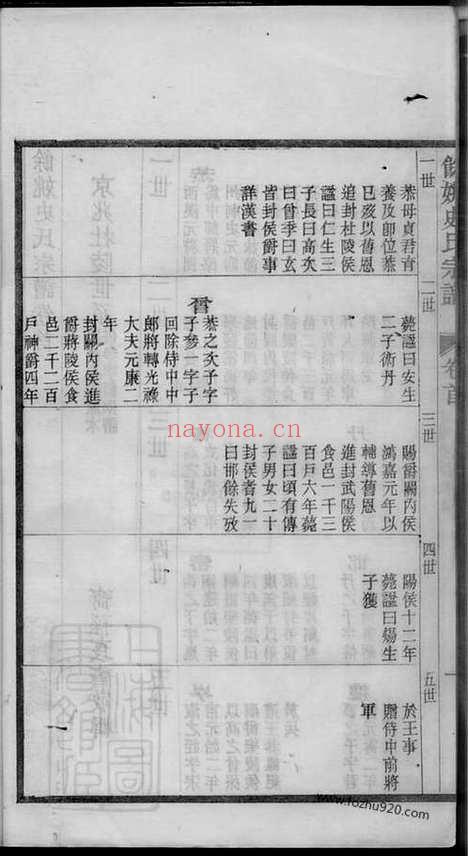 餘姚史氏宗譜 卷首
一世
恭母貞君育
養及卽位恭
已歿以舊恩
追封杜陵侯
諡曰仁生三
子長曰高次
曰曾季曰玄
皆封侯爵事
詳漢書
二世
薨諡曰安生
二子術丹
曾
恭之次子字
子參一字子
回除侍中中
郎將轉光祿
大夫元康二
年
封關內侯進
爵將陵侯食
邑二千二百
戶神爵四年
三世
賜爵關內侯
鴻嘉元年以
輔導舊恩
進封武陽侯
食邑一千三
百戶六年薨
諡曰頃有傳
子男女二十
封侯者九一
曰邯餘失攷
四世
陽侯十二年
薨諡曰煬生
子獲
五世
於王事
贈侍中前將
軍
nayona.cn
www.fozhu920.com